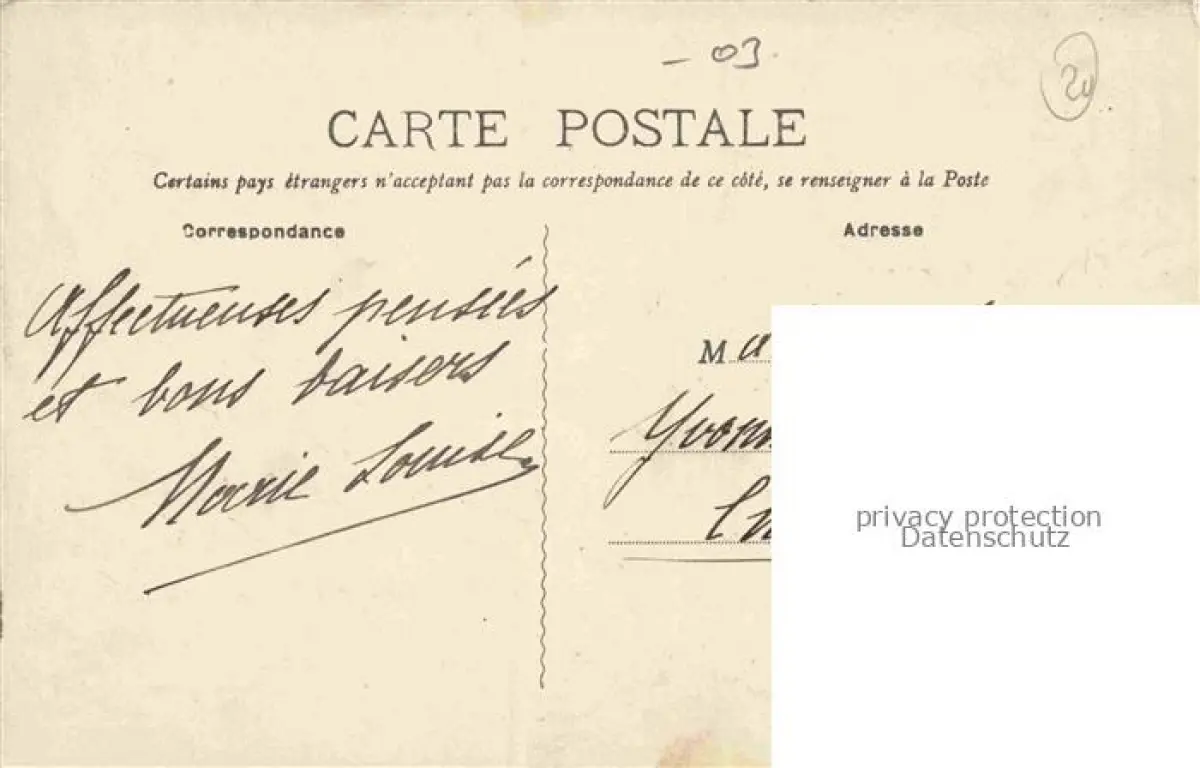 - 03
24
CARTE POSTALE
Certains pays étrangers n'acceptant pas la correspondance de ce côté, se renseigner à la Poste
Correspondance
Adresse
Affectueuses pensées
et bons baisers
Marie Louise
Ma
Yvon
privacy protection
Datenschutz